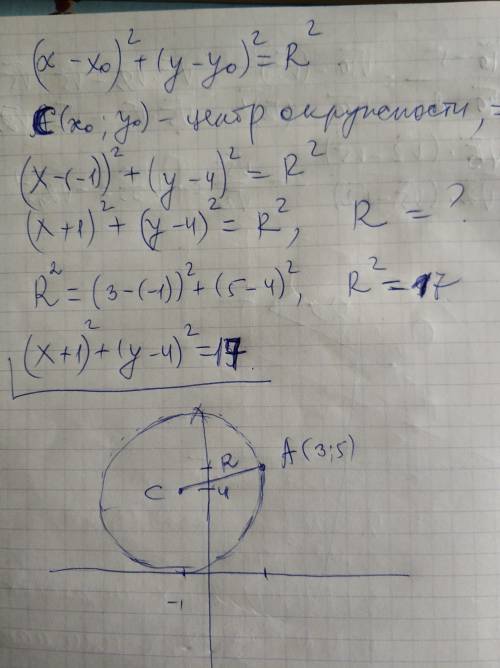 (x - x₀)² + (y - y₀)² = R²
C(x₀; y₀) - центр окружности, =
(x-(-1))² + (y-4)² = R²
(x+1)² + (y-4)² = R², R = ?
R² = (3-(-1))² + (5-4)², R² = 17
(x+1)² + (y-4)² = 17.
A(3;5)
R
C
4
-1